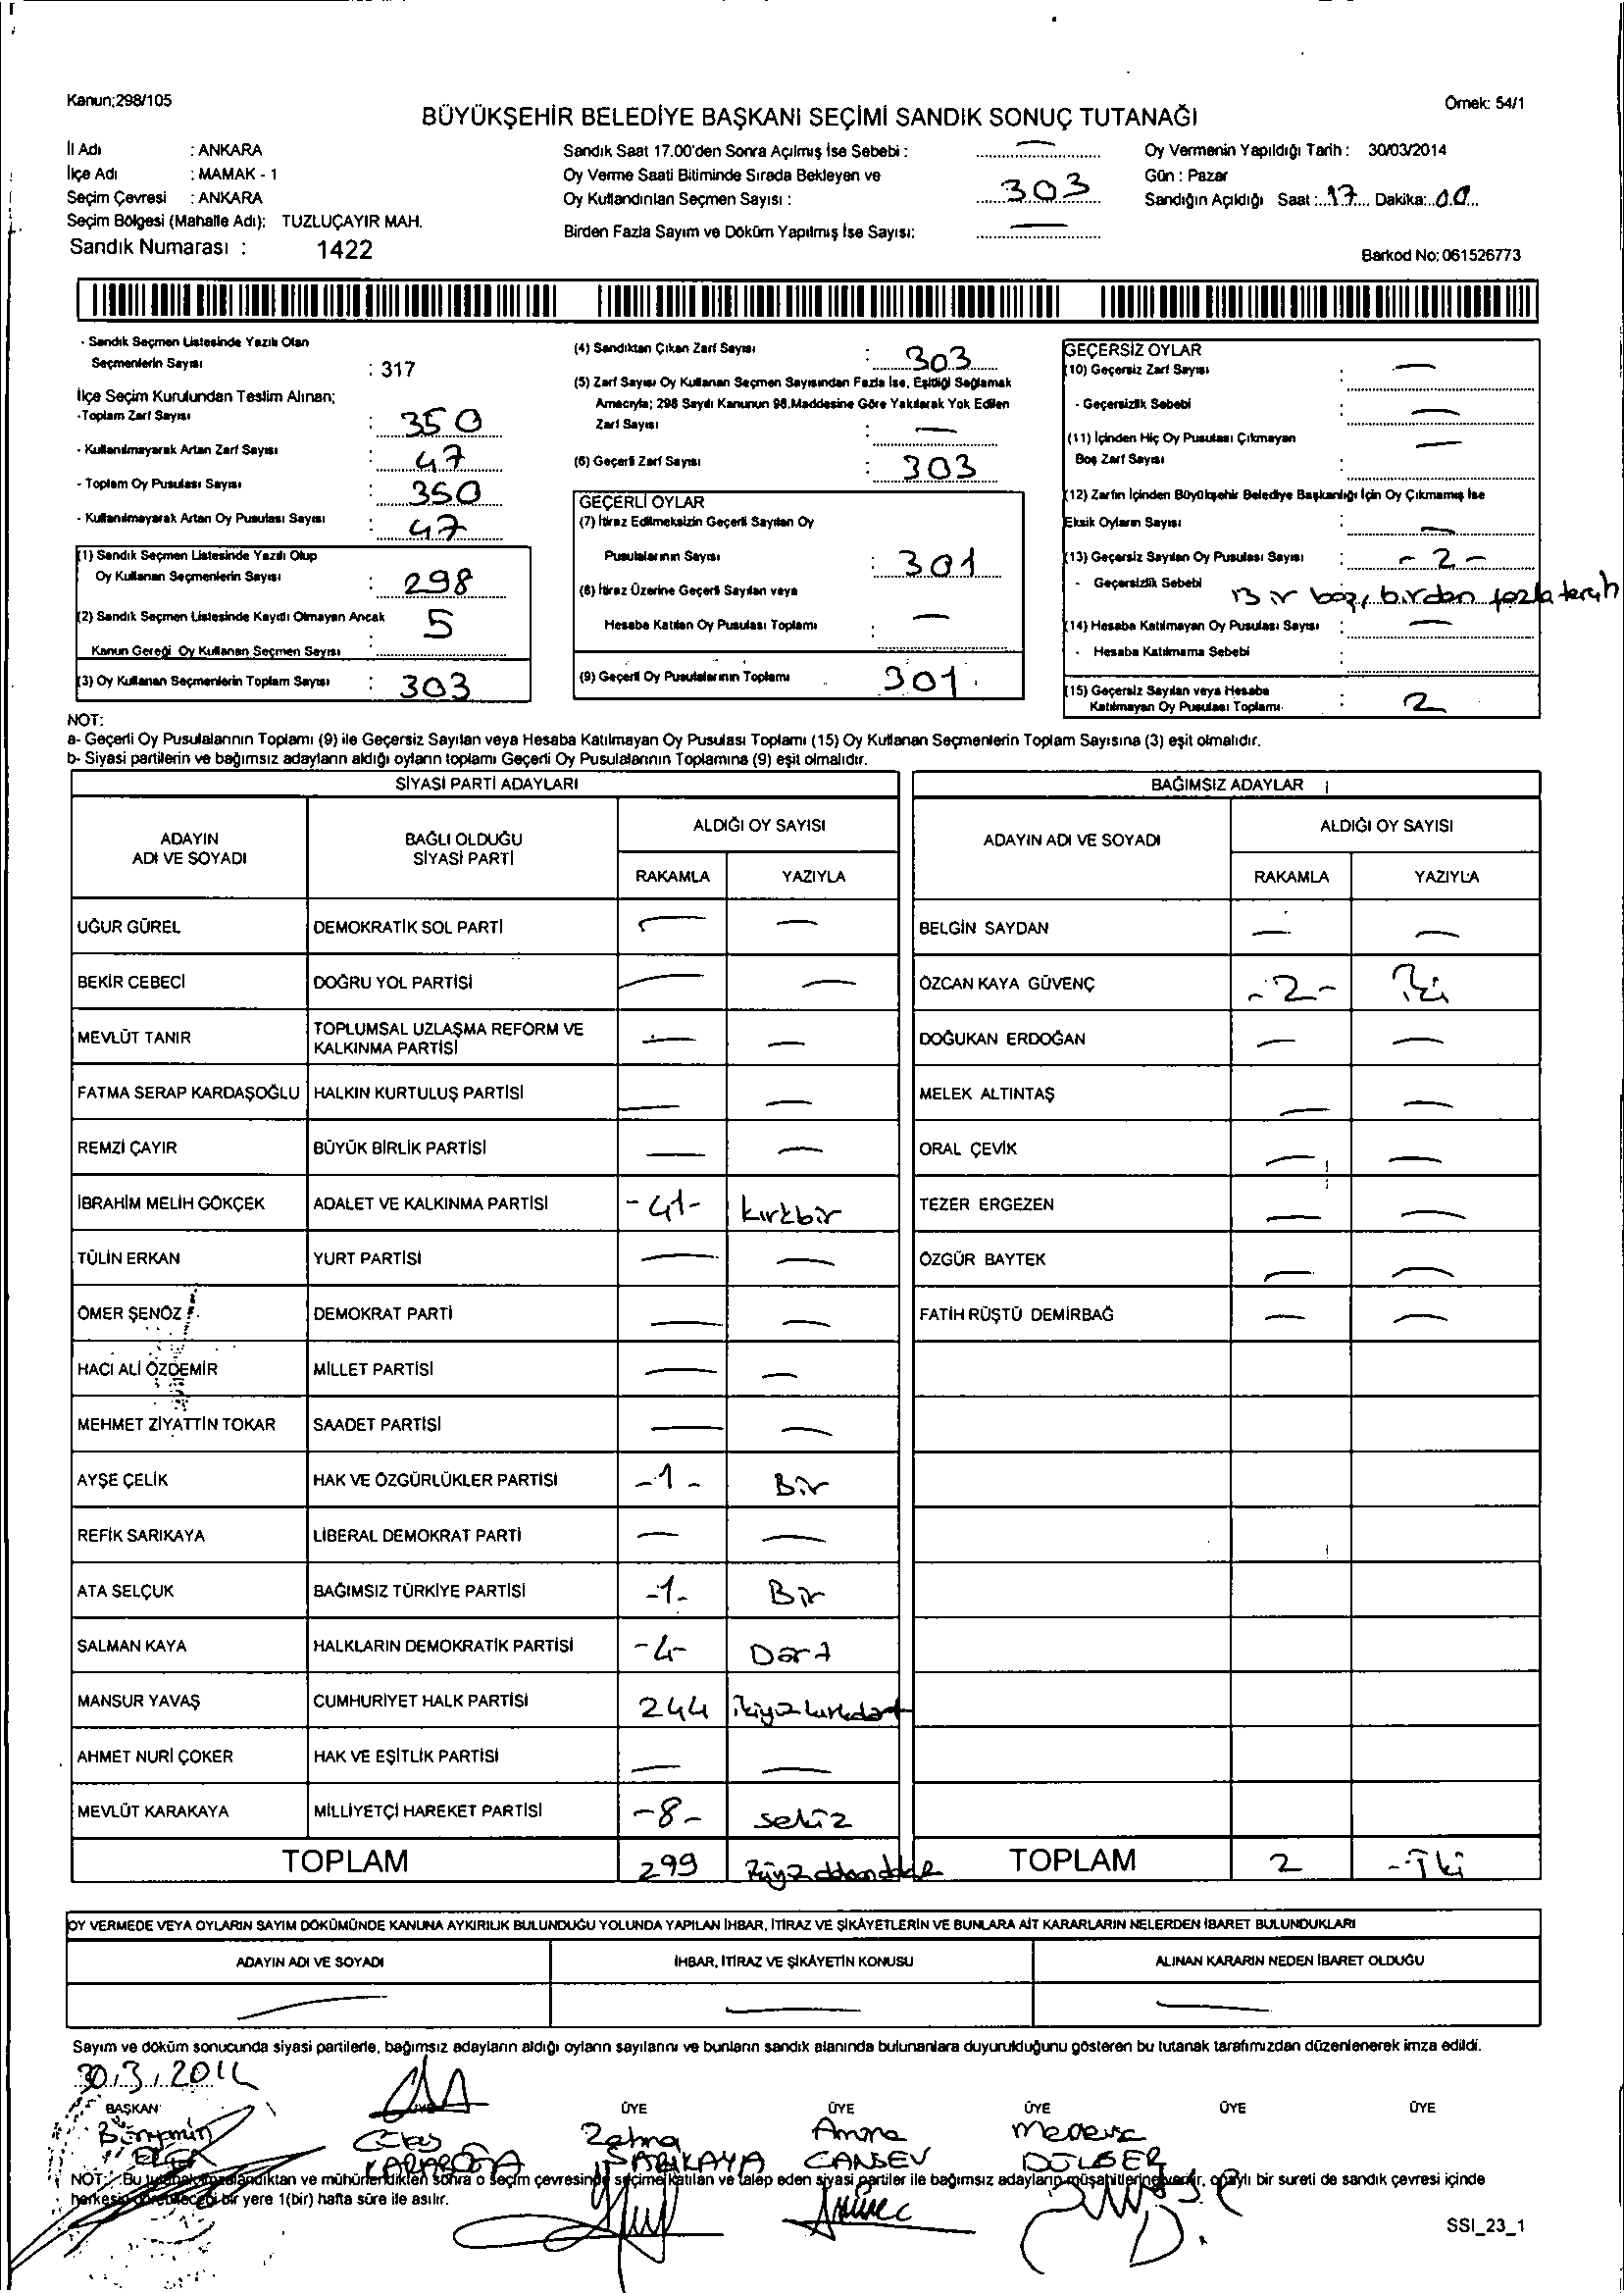 Kanun;298/105
Örnek: 54/1
BÜYÜKŞEHİR BELEDİYE BAŞKANI SEÇİMİ SANDIK SONUÇ TUTANAĞI
İl Adı : ANKARA
İlçe Adı : MAMAK - 1
Seçim Çevresi : ANKARA
Seçim Bölgesi (Mahalle Adı): TUZLUÇAYIR MAH.
Sandık Numarası : 1422
Sandık Saat 17.00'den Sonra Açılmış İse Sebebi : —
Oy Verme Saati Bitiminde Sırada Bekleyen ve
Oy Kullandırılan Seçmen Sayısı : 303
Birden Fazla Sayım ve Döküm Yapılmış İse Sayısı: —
Oy Vermenin Yapıldığı Tarih : 30/03/2014
Gün : Pazar
Sandığın Açıldığı Saat :..17.... Dakika:..00...
Barkod No: 061526773
- Sandık Seçmen Listesinde Yazılı Olan
Seçmenlerin Sayısı : 317
İlçe Seçim Kurulundan Teslim Alınan;
-Toplam Zarf Sayısı : 350
- Kullanılmayarak Artan Zarf Sayısı : 47
- Toplam Oy Pusulası Sayısı : 350
- Kullanılmayarak Artan Oy Pusulası Sayısı : 47
(1) Sandık Seçmen Listesinde Yazılı Olup
Oy Kullanan Seçmenlerin Sayısı : 298
(2) Sandık Seçmen Listesinde Kaydı Olmayan Ancak
Kanun Gereği Oy Kullanan Seçmen Sayısı : 5
(3) Oy Kullanan Seçmenlerin Toplam Sayısı : 303
(4) Sandıktan Çıkan Zarf Sayısı : 303
(5) Zarf Sayısı Oy Kullanan Seçmen Sayısından Fazla İse, Eşitliği Sağlamak
Amacıyla; 298 Sayılı Kanunun 98.Maddesine Göre Yakılarak Yok Edilen
Zarf Sayısı : —
(6) Geçerli Zarf Sayısı : 303
GEÇERLİ OYLAR
(7) İtiraz Edilmeksizin Geçerli Sayılan Oy
Pusulalarının Sayısı : 301
(8) İtiraz Üzerine Geçerli Sayılan veya
Hesaba Katılan Oy Pusulası Toplamı : —
(9) Geçerli Oy Pusulalarının Toplamı 301
GEÇERSİZ OYLAR
(10) Geçersiz Zarf Sayısı : —
- Geçersizlik Sebebi : —
(11) İçinden Hiç Oy Pusulası Çıkmayan
Boş Zarf Sayısı : —
(12) Zarfın İçinden Büyükşehir Belediye Başkanlığı İçin Oy Çıkmamış İse
Eksik Oyların Sayısı : —
(13) Geçersiz Sayılan Oy Pusulası Sayısı : - 2 -
- Geçersizlik Sebebi Bir boş, birden fazla tercih
(14) Hesaba Katılmayan Oy Pusulası Sayısı : —
- Hesaba Katılmama Sebebi :
(15) Geçersiz Sayılan veya Hesaba
Katılmayan Oy Pusulası Toplamı : 2
NOT:
a- Geçerli Oy Pusulalarının Toplamı (9) ile Geçersiz Sayılan veya Hesaba Katılmayan Oy Pusulası Toplamı (15) Oy Kullanan Seçmenlerin Toplam Sayısına (3) eşit olmalıdır.
b- Siyasi partilerin ve bağımsız adayların aldığı oyların toplamı Geçerli Oy Pusulalarının Toplamına (9) eşit olmalıdır.
SİYASİ PARTİ ADAYLARI
ADAYIN ADI VE SOYADI BAĞLI OLDUĞU SİYASİ PARTİ ALDIĞI OY SAYISI
RAKAMLA YAZIYLA
UĞUR GÜREL DEMOKRATİK SOL PARTİ — —
BEKİR CEBECİ DOĞRU YOL PARTİSİ — —
MEVLÜT TANIR TOPLUMSAL UZLAŞMA REFORM VE KALKINMA PARTİSİ — —
FATMA SERAP KARDAŞOĞLU HALKIN KURTULUŞ PARTİSİ — —
REMZİ ÇAYIR BÜYÜK BİRLİK PARTİSİ — —
İBRAHİM MELİH GÖKÇEK ADALET VE KALKINMA PARTİSİ -41- kırkbir
TÜLİN ERKAN YURT PARTİSİ — —
ÖMER ŞENÖZ DEMOKRAT PARTİ — —
HACI ALİ ÖZDEMİR MİLLET PARTİSİ — —
MEHMET ZİYATTİN TOKAR SAADET PARTİSİ — —
AYŞE ÇELİK HAK VE ÖZGÜRLÜKLER PARTİSİ -1- Bir
REFİK SARIKAYA LİBERAL DEMOKRAT PARTİ — —
ATA SELÇUK BAĞIMSIZ TÜRKİYE PARTİSİ -1- Bir
SALMAN KAYA HALKLARIN DEMOKRATİK PARTİSİ -4- Dört
MANSUR YAVAŞ CUMHURİYET HALK PARTİSİ 244 ikiyüzkırkdört
AHMET NURİ ÇOKER HAK VE EŞİTLİK PARTİSİ — —
MEVLÜT KARAKAYA MİLLİYETÇİ HAREKET PARTİSİ -8- sekiz
TOPLAM 299
BAĞIMSIZ ADAYLAR
ADAYIN ADI VE SOYADI ALDIĞI OY SAYISI
RAKAMLA YAZIYLA
BELGİN SAYDAN — —
ÖZCAN KAYA GÜVENÇ -2- İki
DOĞUKAN ERDOĞAN — —
MELEK ALTINTAŞ — —
ORAL ÇEVİK — —
TEZER ERGEZEN — —
ÖZGÜR BAYTEK — —
FATİH RÜŞTÜ DEMİRBAĞ — —
TOPLAM 2 -İki
OY VERMEDE VEYA OYLARIN SAYIM DÖKÜMÜNDE KANUNA AYKIRILIK BULUNDUĞU YOLUNDA YAPILAN İHBAR, İTİRAZ VE ŞİKÂYETLERİN VE BUNLARA AİT KARARLARIN NELERDEN İBARET BULUNDUKLARI
ADAYIN ADI VE SOYADI İHBAR, İTİRAZ VE ŞİKÂYETİN KONUSU ALINAN KARARIN NEDEN İBARET OLDUĞU
— — —
Sayım ve döküm sonucunda siyasi partilerle, bağımsız adayların aldığı oyların sayılarını ve bunların sandık alanında bulunanlara duyurulduğunu gösteren bu tutanak tarafımızdan düzenlenerek imza edildi.
30.3.2014
BAŞKAN ÜYE ÜYE ÜYE ÜYE ÜYE
Bünyamin Zehra Amine
SARIKAYA CANSEV DÜLGER
NOT: Bu tutanak imzalandıktan ve mühürlendikten sonra o seçim çevresinde seçime katılan ve talep eden siyasi partiler ile bağımsız adayların müşahitlerine verilir, onaylı bir sureti de sandık çevresi içinde
herkesin görebileceği bir yere 1(bir) hafta süre ile asılır.
SSI_23_1